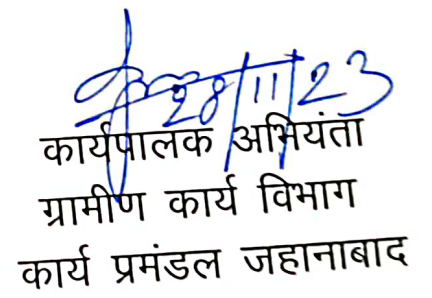 28/11/23
कार्यपालक अभियंता
ग्रामीण कार्य विभाग
कार्य प्रमंडल जहानाबाद